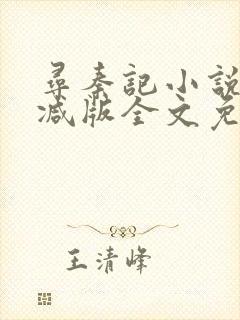 尋秦記小說
减版全文免
王清峰